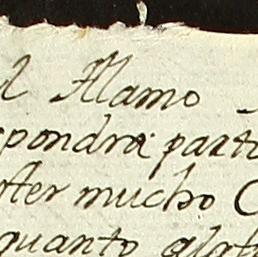 l Alamo
spondrá parti
ster mucho C
quanto